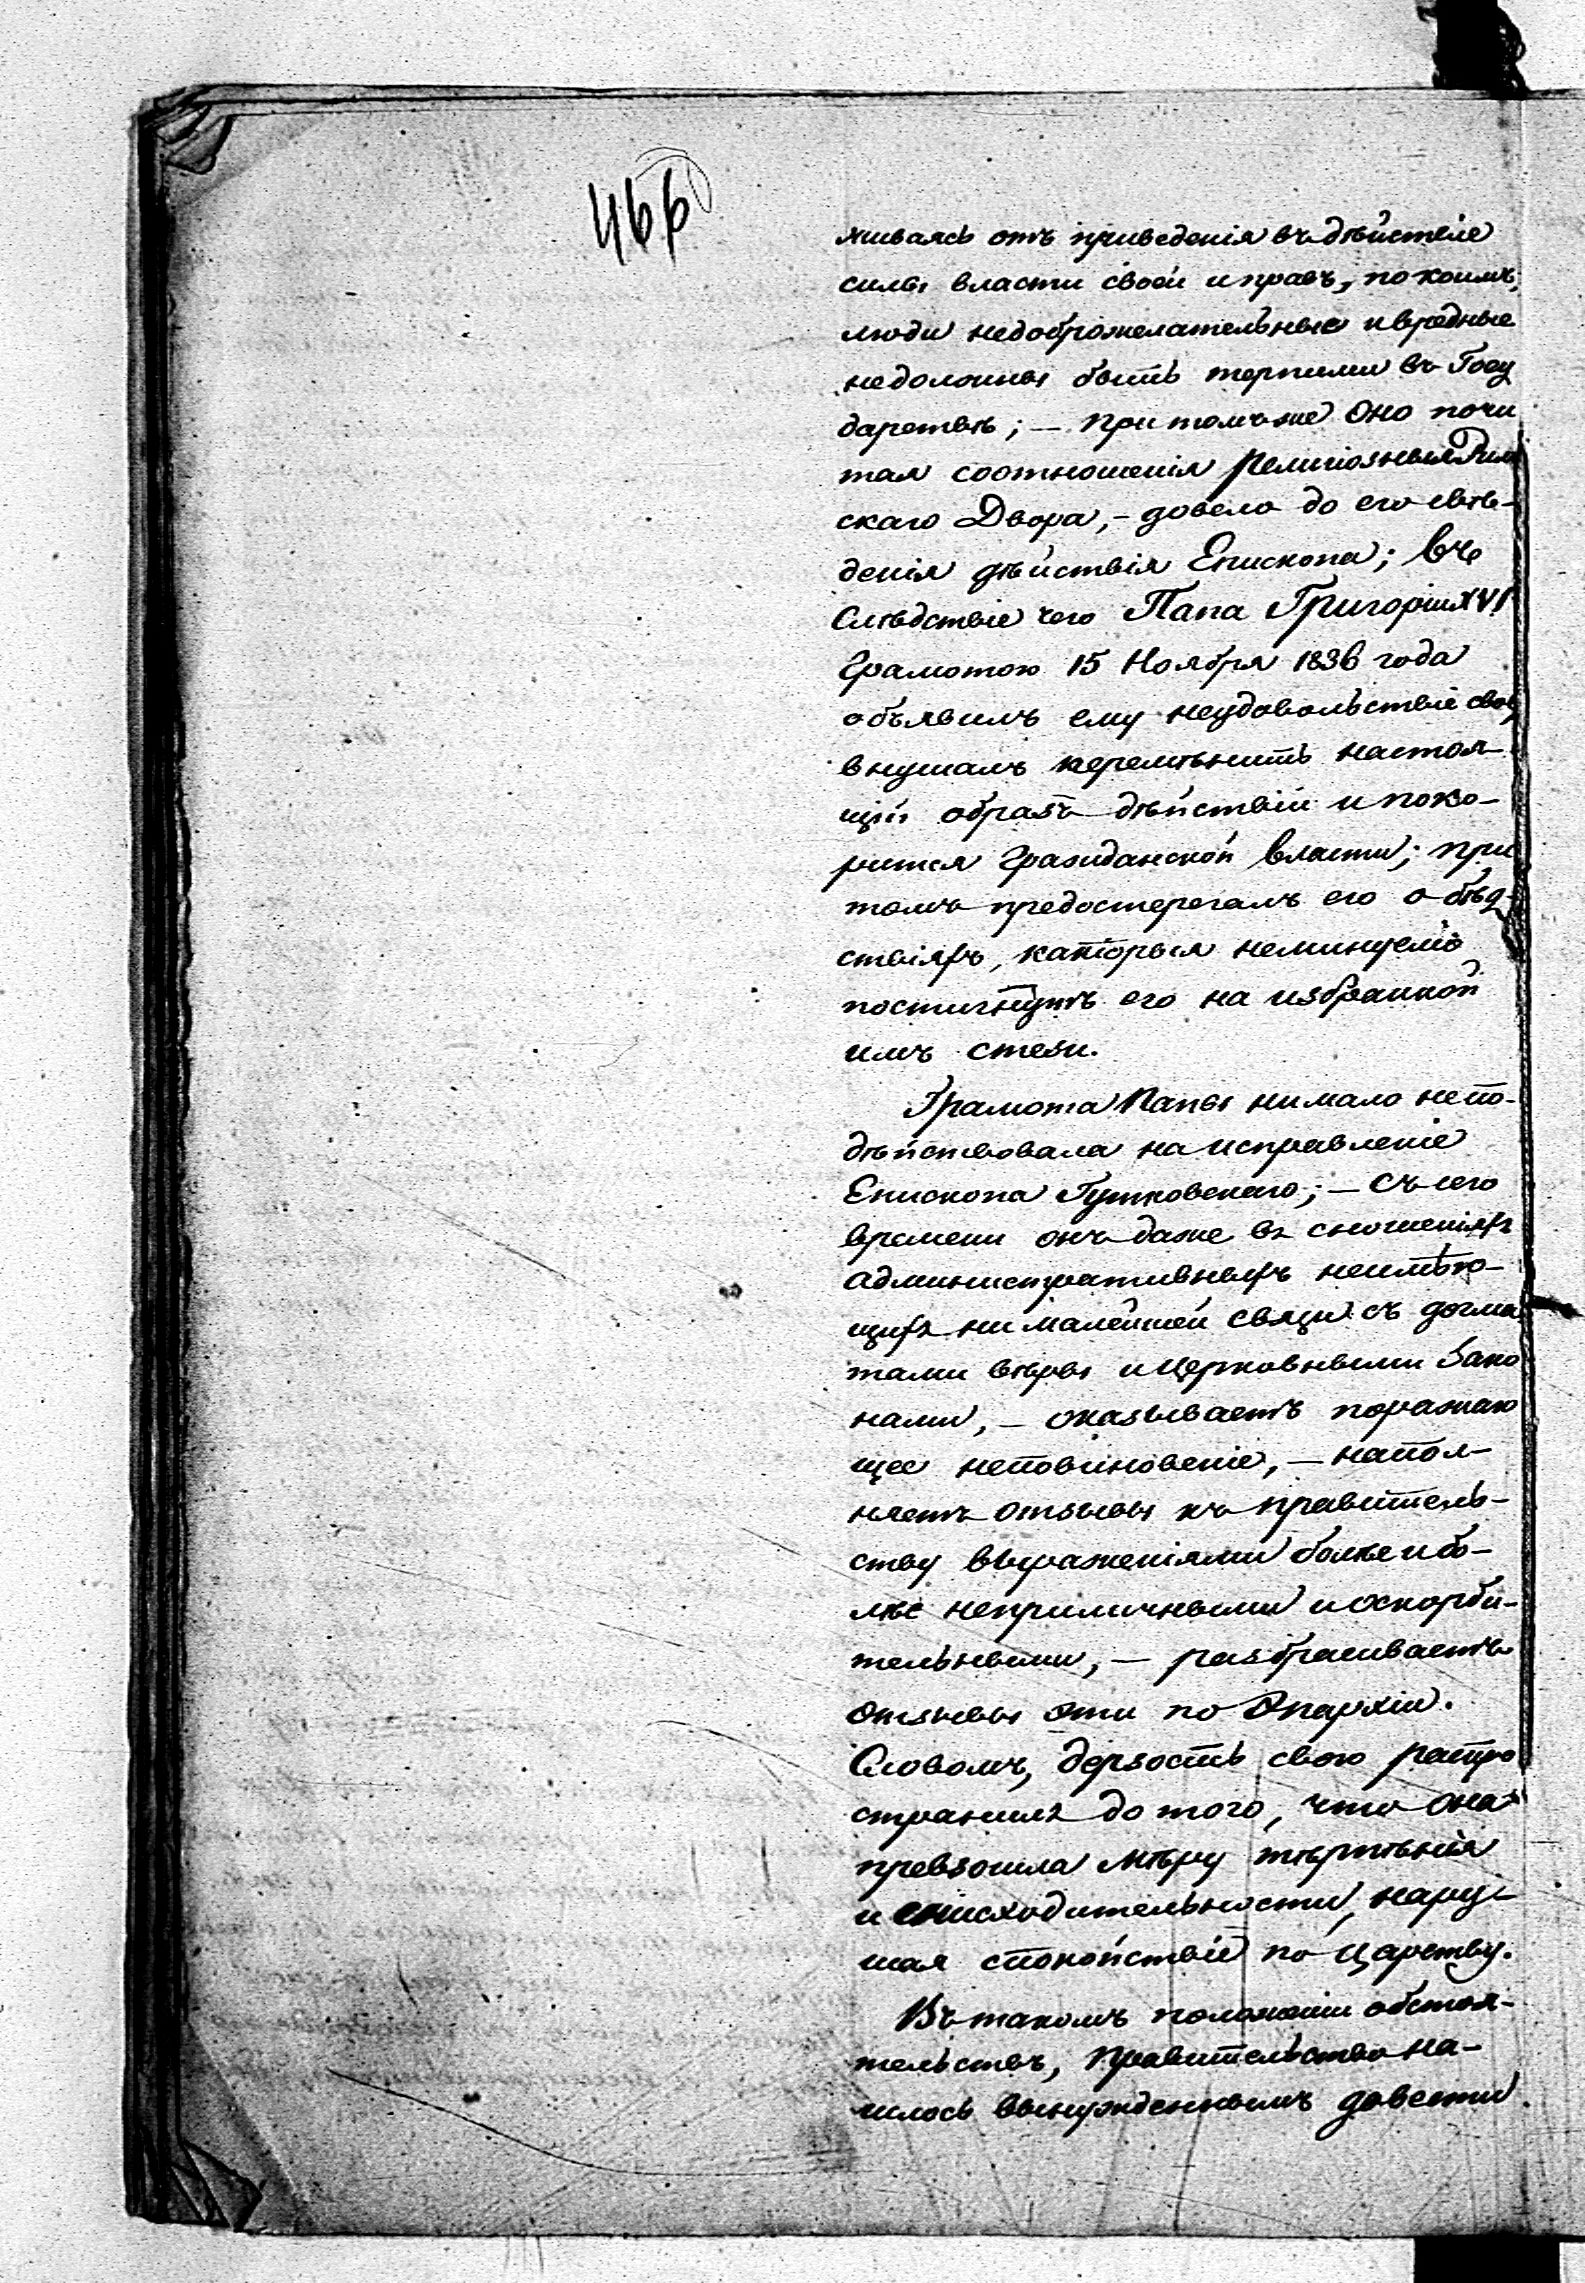 466
живаясь отъ приведенія въ дѣйствіе
силы власти своей и правъ, по коимъ,
люди недоброжелательные и вредные
недолжны быть терпимы въ Госу
дарствѣ; — При томъ же Оно почи
тая соотношенія Религіозныя Рим
скаго Двора, — довело до его свѣ-
денія дѣйствія Епископа; Въ
Слѣдствіе чего Папа Григорій XVI
Грамотою 15 Ноября 1836 года
объявилъ ему неудовольствіе свое
внушалъ перемѣнить настоя-
щій образъ дѣйствій и поко-
рится Гражданской Власти; при
томъ предостерегалъ его о бѣд-
ствіяхъ, каторыя неминуемо
постигнутъ его на избранной
имъ стези.
Грамота Папы нимало непо-
дѣйствовала на исправленіе
Епископа Гутковскаго; — Съ сего
времени онъ даже въ сношеніяхъ
административныхъ неимѣю-
щихъ ни малейшей связи съ догма
тами вѣры и Церковными Зако
нами, — оказываетъ поражаю
щее неповиновеніе, — напол-
няетъ отзывы къ правитель-
ству выраженіями болѣе и бо-
лѣе неприличными и оскорби-
тельными, — разбрасываетъ
отзывы эти по Эпархіи.
Словомъ, дерзость свою распро
странилъ до того, что она
превзошла мѣру терпѣнія
и снисходительности, нару-
шая спокойствіе по Царству.
Въ такомъ положеніи обстоя-
тельствъ, Правительство на-
шлось вынужденнымъ довести